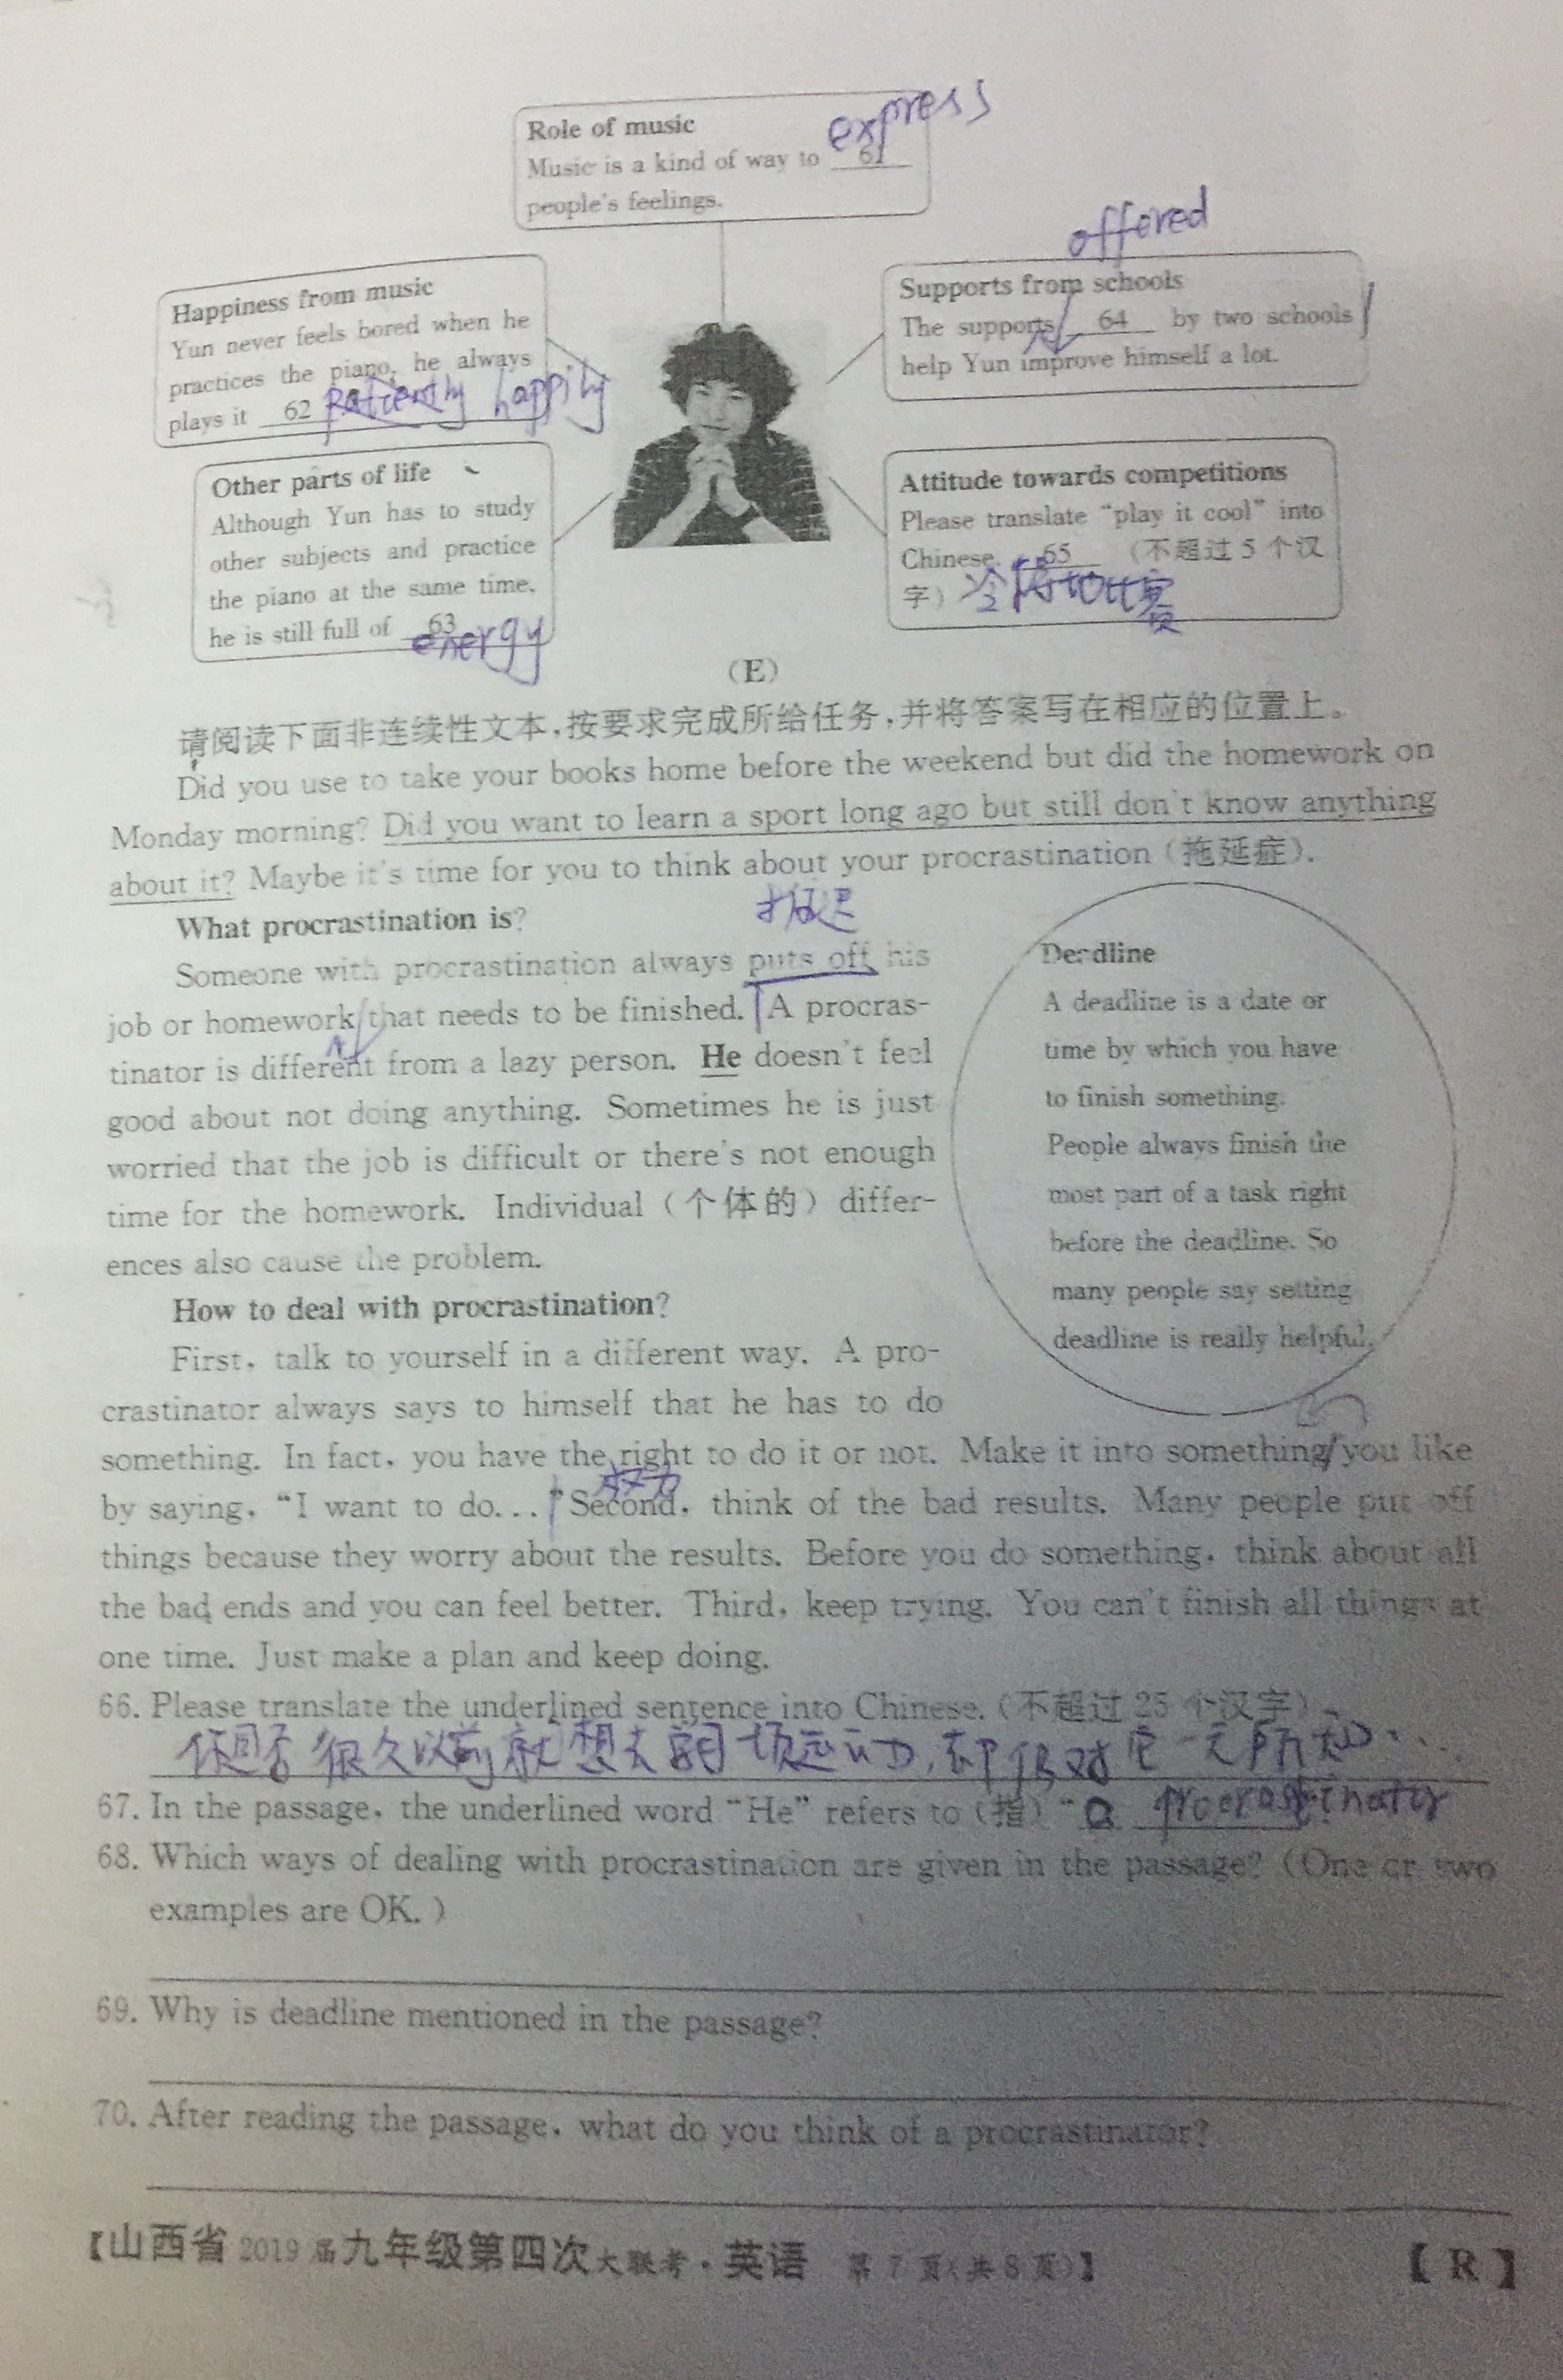 Role of music
express
Music is a kind of way to 61
people's feelings.
Happiness from music
Yun never feels bored when he
practices the piano, he always
plays it 62 patiently happily
offered
Supports from schools
The supports 64 by two schools
help Yun improve himself a lot.
Other parts of life
Although Yun has to study
other subjects and practice
the piano at the same time,
he is still full of 63
energy
Attitude towards competitions
Please translate “play it cool” into
Chinese. 65 (不超过 5 个汉
字)
(E)
请阅读下面非连续性文本,按要求完成所给任务,并将答案写在相应的位置上。
Did you use to take your books home before the weekend but did the homework on
Monday morning? Did you want to learn a sport long ago but still don't know anything
about it? Maybe it's time for you to think about your procrastination (拖延症).
What procrastination is?
Someone with procrastination always puts off his
job or homework that needs to be finished. A procras-
tinator is different from a lazy person. He doesn't feel
good about not doing anything. Sometimes he is just
worried that the job is difficult or there's not enough
time for the homework. Individual (个体的) differ-
ences also cause the problem.
Deadline
A deadline is a date or
time by which you have
to finish something.
People always finish the
most part of a task right
before the deadline. So
many people say setting
deadline is really helpful.
How to deal with procrastination?
First, talk to yourself in a different way. A pro-
crastinator always says to himself that he has to do
something. In fact, you have the right to do it or not. Make it into something you like
权力
by saying, “I want to do...” Second, think of the bad results. Many people put off
things because they worry about the results. Before you do something, think about all
the bad ends and you can feel better. Third, keep trying. You can't finish all things at
one time. Just make a plan and keep doing.
66. Please translate the underlined sentence into Chinese. (不超过 25 个汉字)
你是否很久以前就想去学习一项运动,却仍对它一无所知
67. In the passage, the underlined word “He” refers to (指) “a procrastinator
68. Which ways of dealing with procrastination are given in the passage? (One or two
examples are OK.)
69. Why is deadline mentioned in the passage?
70. After reading the passage, what do you think of a procrastinator?
【山西省 2019 届九年级第四次大联考·英语 第 7 页(共 8 页)】 【R】